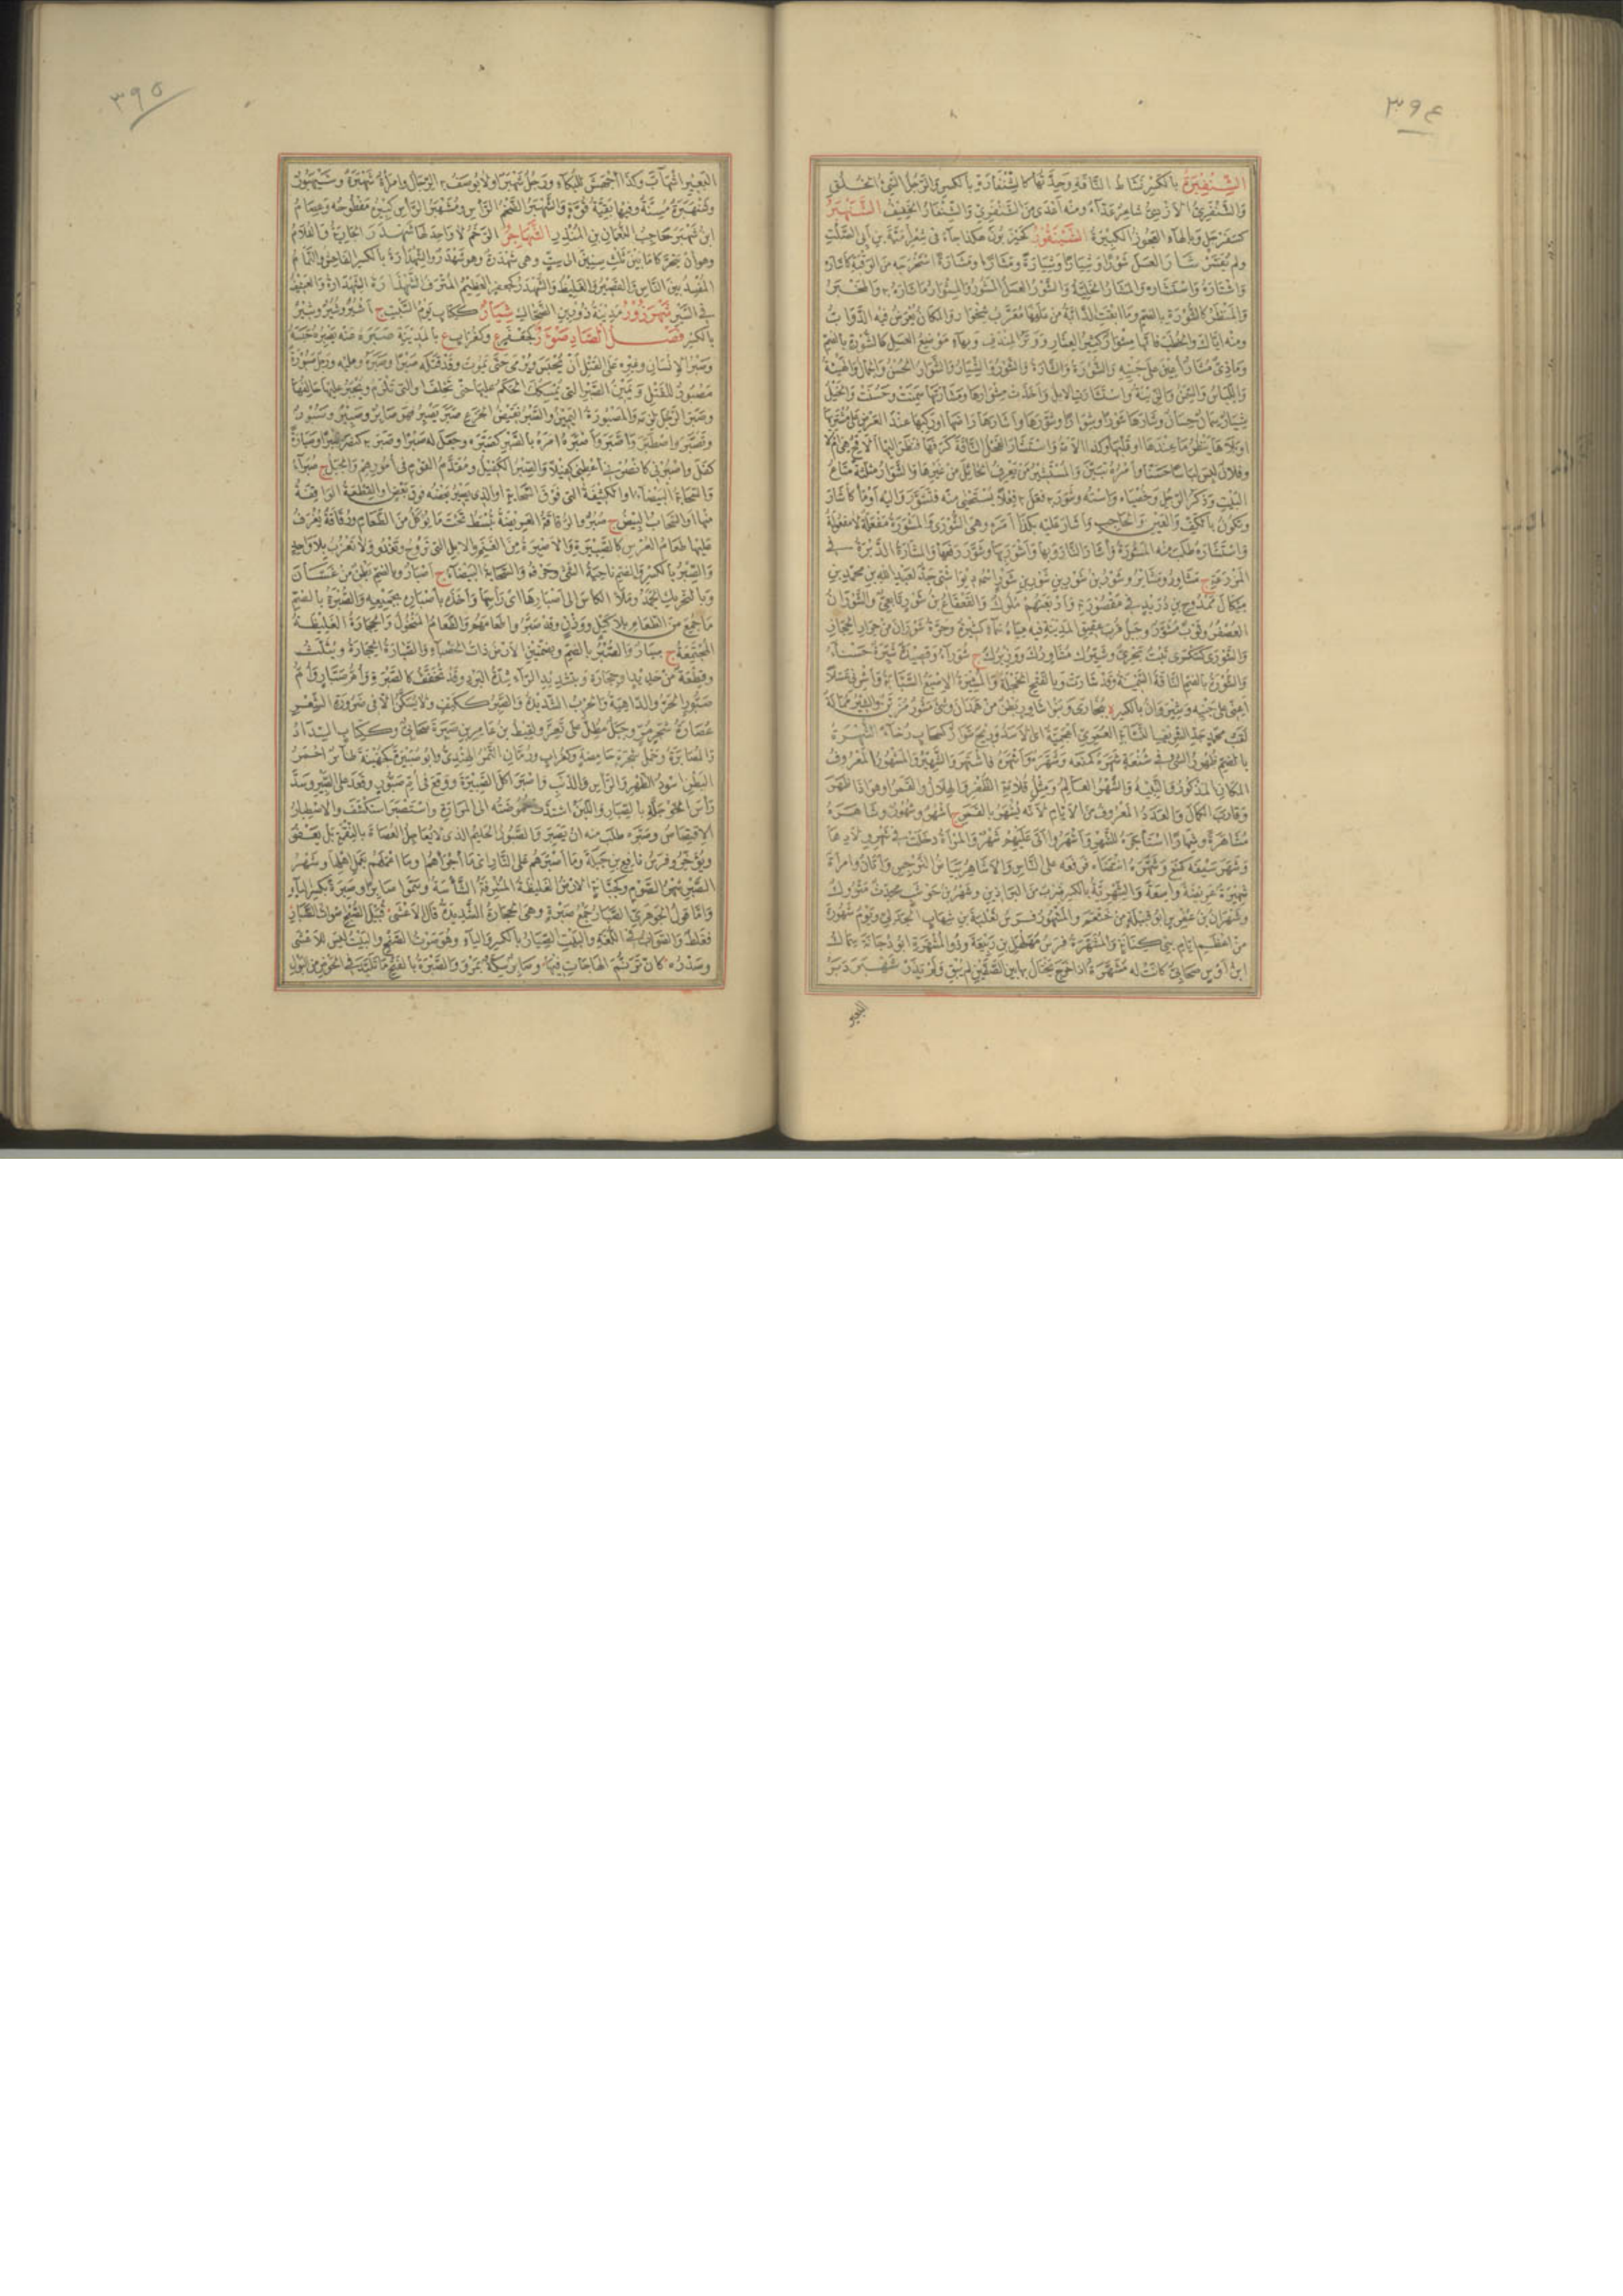 ٣٩٤
الشنفيرة بالكسر نشاط الناقة وحدتها كالشنفارة وبالكسر الرجل السيئ الخلق
والشنفرى الازدي شاعر عداء ومنه اعدى من الشنفرى والشنفار الخفيف الشنهبر
كسفرجل وبالهاء العجوز الكبيرة الشنيقور كحيزبون هكذا جاء في شعر امية بن ابي الصلت
ولم يفسر شار العسل شورا وشيارا وشيارة ومشارا ومشارة استخرجه من الوقبة كاشاره
واشتاره واستشاره والمشار الخلية والشور العسل المشور والمشوار ما شاره به والمخبر
والمنظر كالشورة بالضم وما ابقت الدابة من علفها معرب نشخوار والمكان تعرض فيه الدواب
ومنه اياك والخطب فانها مشوار كثير العثار ووتر المندف وبهاء موضع العسل كالشورة بالضم
والشورة والشارة والشور والشيار والشوار الحسن والجمال والهيئة
واللباس والسمن والزينة واستشارت الابل واخذت مشوارها ومشارتها سمنت وحسنت والخيل
شيار سمان حسان وشارها شورا وشوارا وشورها واشارها راضها او ركبها عند العرض على مشتريها
او بلاها ينظر ما عندها او قلبها وكذا الامة واستشار الفحل الناقة كرفها فنظر اليها الاقح هي ام لا
وفلان لبس لباسا حسنا وامره تبين والمستشير من يعرف الحائل من غيرها والشوار مثلثة متاع
البيت وذكر الرجل وخصياه واسته وشور به فعل به فعلا يستحيى منه فتشور واليه اوما كاشار
ويكون بالكف والعين والحاجب واشار عليه بكذا امره وهي الشورى والمشورة مفعلة لا مفعولة
واستشاره طلب منه المشورة واشار النار وبها واشور بها وشور رفعها والمشارة الدبرة في
المزرعة ج مشاور ومشائر
ميكال ممدوح بن دريد في مقصورته والقعقاع بن شور تابعي والشوران
العصفر وثوب مشور وجبل قرب عقيق المدينة فيه مياه سماء كثيرة وحرة شوران من حرار الحجاز
والشورى كسكرى نبت بحري وشيرك مشاورك ووزيرك ج شوراء وقصيدة شيرة حسناء
والشورة بالضم الناقة السمينة وقد شارت وبالفتح الخجلة والمشيرة الاصبع السبابة
لقب محمد جد الشريف
بالضم ظهور الشيء في شنعة شهره كمنعه وشهره واشتهره فاشتهر والشهير والمشهور المعروف
المكان المذكور والنبيه والشهر العالم ومثل قلامة الظفر والهلال والقمر او هو اذا ظهر
وقارب الكمال والعدد المعروف من الايام لانه يشهر بالقمر ج اشهر وشهور وشاهره
مشاهرة وشهارا استاجره للشهر واشهروا اتى عليهم شهر والمراة دخلت في شهر ولادها
وشهر سيفه كمنع وشهره انتضاه فرفعه على الناس والاشاهر بياض النرجس واتان وامراة
شهيرة عريضة واسعة والشهرية بالكسر ضرب من البراذين وشهر بن حوشب محدث متروك
وشهران بن عفرس ابو قبيلة من خثعم والمشهور فرس ثعلبة بن شهاب الجدلي ويوم شهورة
من اعظم ايام بني كنانة والمشهرة فرس مهلهل بن ربيعة وذو المشهرة ابو دجانة سماك
ابن اوس صحابي كانت له مشهرة اذا خرج يختال بها بين الصفين لم يبق ولم يذر شهبر دبر
البعير
٣٩٥
البعير اشهاب وكذا اجهش للبكاء ورجل شهبر اولا يوصف به الرجال وامراة شهبرة وشيهبور
وشنهبرة مسنة وفيها بقية قوة والشهبر الضخم الراس ومشهبر الراس كبير مفطوحه وعصام
ابن شهبر حاجب النعمان بن المنذر الشهاجر الرخم لا واحد لها شهدر الجارية والغلام
وهو ان يتحركا ما بين ثلث سنين الى ست وهي شهدرة وهو شهدر والشهدارة بالكسر الفاحش والنمام
المفسد بين الناس والقصير والغليظ والشهدر كجعفر العظيم المترف الشهذارة الشهدارة والعنيف
في السير شهرزور مدينة زور بن الضحاك شيار ككتاب يوم السبت ج اشير وشير وشير
بالكسر فصل الصاد صؤر كجعفر ع وكغراب ع بالمدينة صبره عنه يصبره حبسه
وصبر الانسان وغيره على القتل ان يحبس ويرمى حتى يموت وقد قتله صبرا وصبره عليه ورجل صبورة
مصبور للقتل ويمين الصبر التي يمسكك الحكم عليها حتى تحلف او التي تلزم ويجبر عليها حالفها
وصبر الرجل لزمه والمصبورة اليمين والصبر نقيض الجزع صبر يصبر فهو صابر وصبير وصبور
وتصبر واصطبر واصبر واصبره امره بالصبر كصبره وجعل له صبرا وصبر به كنصر صبرا وصبارة
كفل واصبرني كانصرني اعطني كفيلا والصبير الكفيل ومقدم القوم في امورهم والجبل ج صبراء
والسحابة البيضاء او الكثيفة التي فوق السحابة او الذي يصير بعضه فوق بعض او القطعة الواقفة
منها او السحاب الابيض ج صبر والرقاقة العريضة تبسط تحت ما يؤكل من الطعام ورقاقة يغرف
عليها طعام العرس كالصبيرة والاصبرة من الغنم والابل التي تروح وتغدو ولا تعزب بلا واحد
والصبر بالكسر والضم ناحية الشيء وحرفه والسحابة البيضاء ج اصبار وبالضم بطن من غسان
وبالتحريك الجمد وملا الكاس الى اصبارها اي راسها واخذه باصباره بجميعه والصبرة بالضم
ما جمع من الطعام بلا كيل ووزن وقد صبروا طعامهم والطعام المنخول والحجارة الغليظة
المجتمعة ج صبار والصبر بالضم وبضمتين الارض ذات الحصباء والصبارة الحجارة ويثلث
وقطعة من حديد او حجارة وبتشديد الراء شدة البرد وقد تخفف كالصبرة وام صبار وام
صبور الحر والداهية والحرب الشديدة والصبر ككتف ولا يسكن الا في ضرورة الشعر
عصارة شجر مر وجبل مطل على تعز ولقيط بن عامر بن صبرة صحابي وككتاب السداد
والمصابرة وحمل شجرة حامضة وكغراب ورمان التمر الهندي وابو صبيرة كجهينة طائر احمر
البطن اسود الظهر والراس والذنب واصبر اكل الصبيرة ووقع في ام صبور وقعد على الصبير وسد
راس الحوجلة بالصبار واللبن اشتدت حموضته الى المرارة واستصبر استكثف والاصطبار
الاقتصاص وصبره طلب منه ان يصبر والصبور الحليم الذي لا يعاجل العصاة بالنقمة بل يعفو
ويؤخر وفرس نافع بن جبلة وما اصبرهم على النار اي ما اجراهم او ما اعملهم بعمل اهلها وشهر
الصبر شهر الصوم وكجبانة الارض الغليظة المشرفة الشاسة وسموا صابرا وصبرة بكسر الباء
واما قول الجوهري الصبار جمع صبرة وهي الحجارة الشديدة قال الاعشى قبيل الصبح اصوات الصبار
فغلط والصواب في اللغة والبيت الصيار بالكسر والياء وهو صوت الصنج والبيت ليس للاعشى
وصدره كان ترنم الهاجات فيها وصابر سكة بمرو والصبرة بالفتح ما تلبد في الحوض من البول